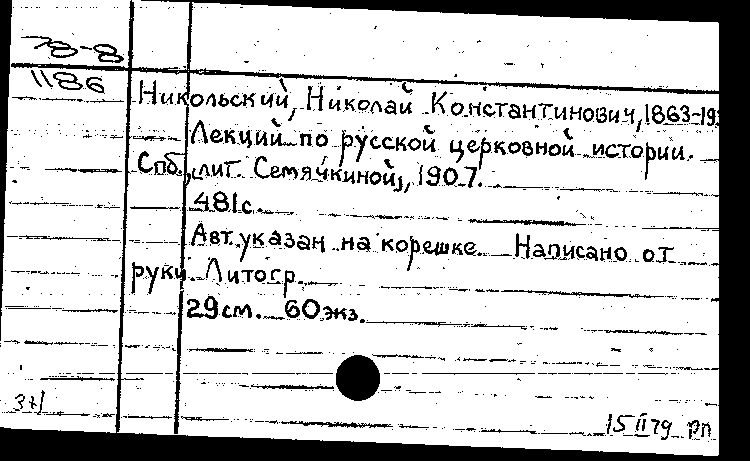 78-8
1186
Никольский, Николай Константинович, 1863-19
Лекций по русской церковной истории.
Спб., лит. Семячкиной, 1907.
481с.
Авт. указан на корешке. Написано от
руки. Литогр.
29см. 60экз.
37/
15 II 79 рп